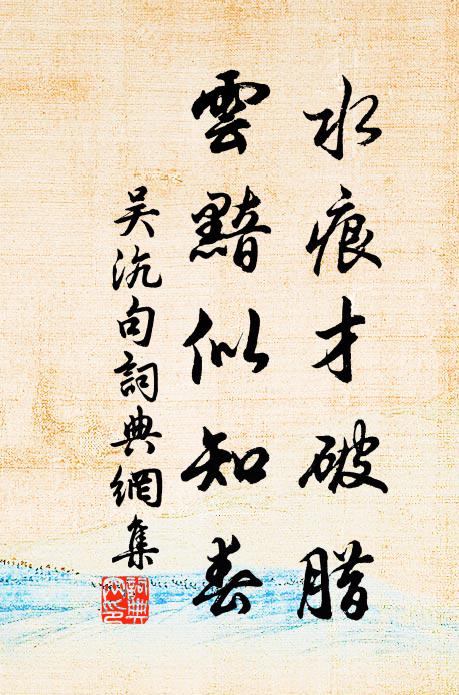 水痕才破腊
雲黯似知春
吴沆句詞典網集